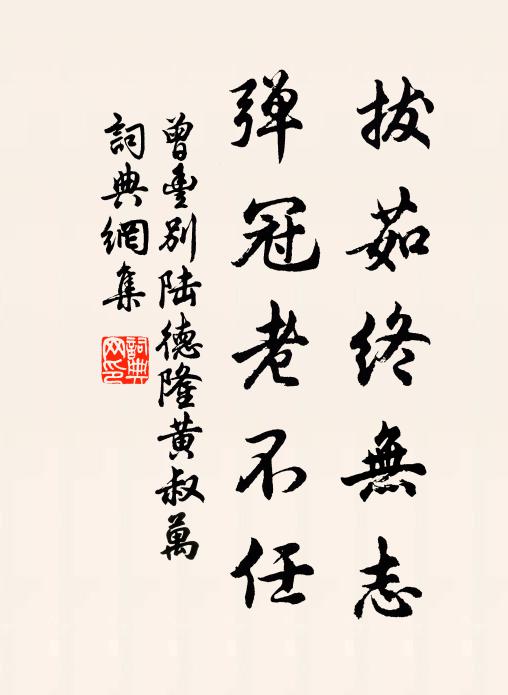 拔茹终無志
弹冠老不任
曾豐别陆德隆黄叔萬
詞典網集
詞典网印